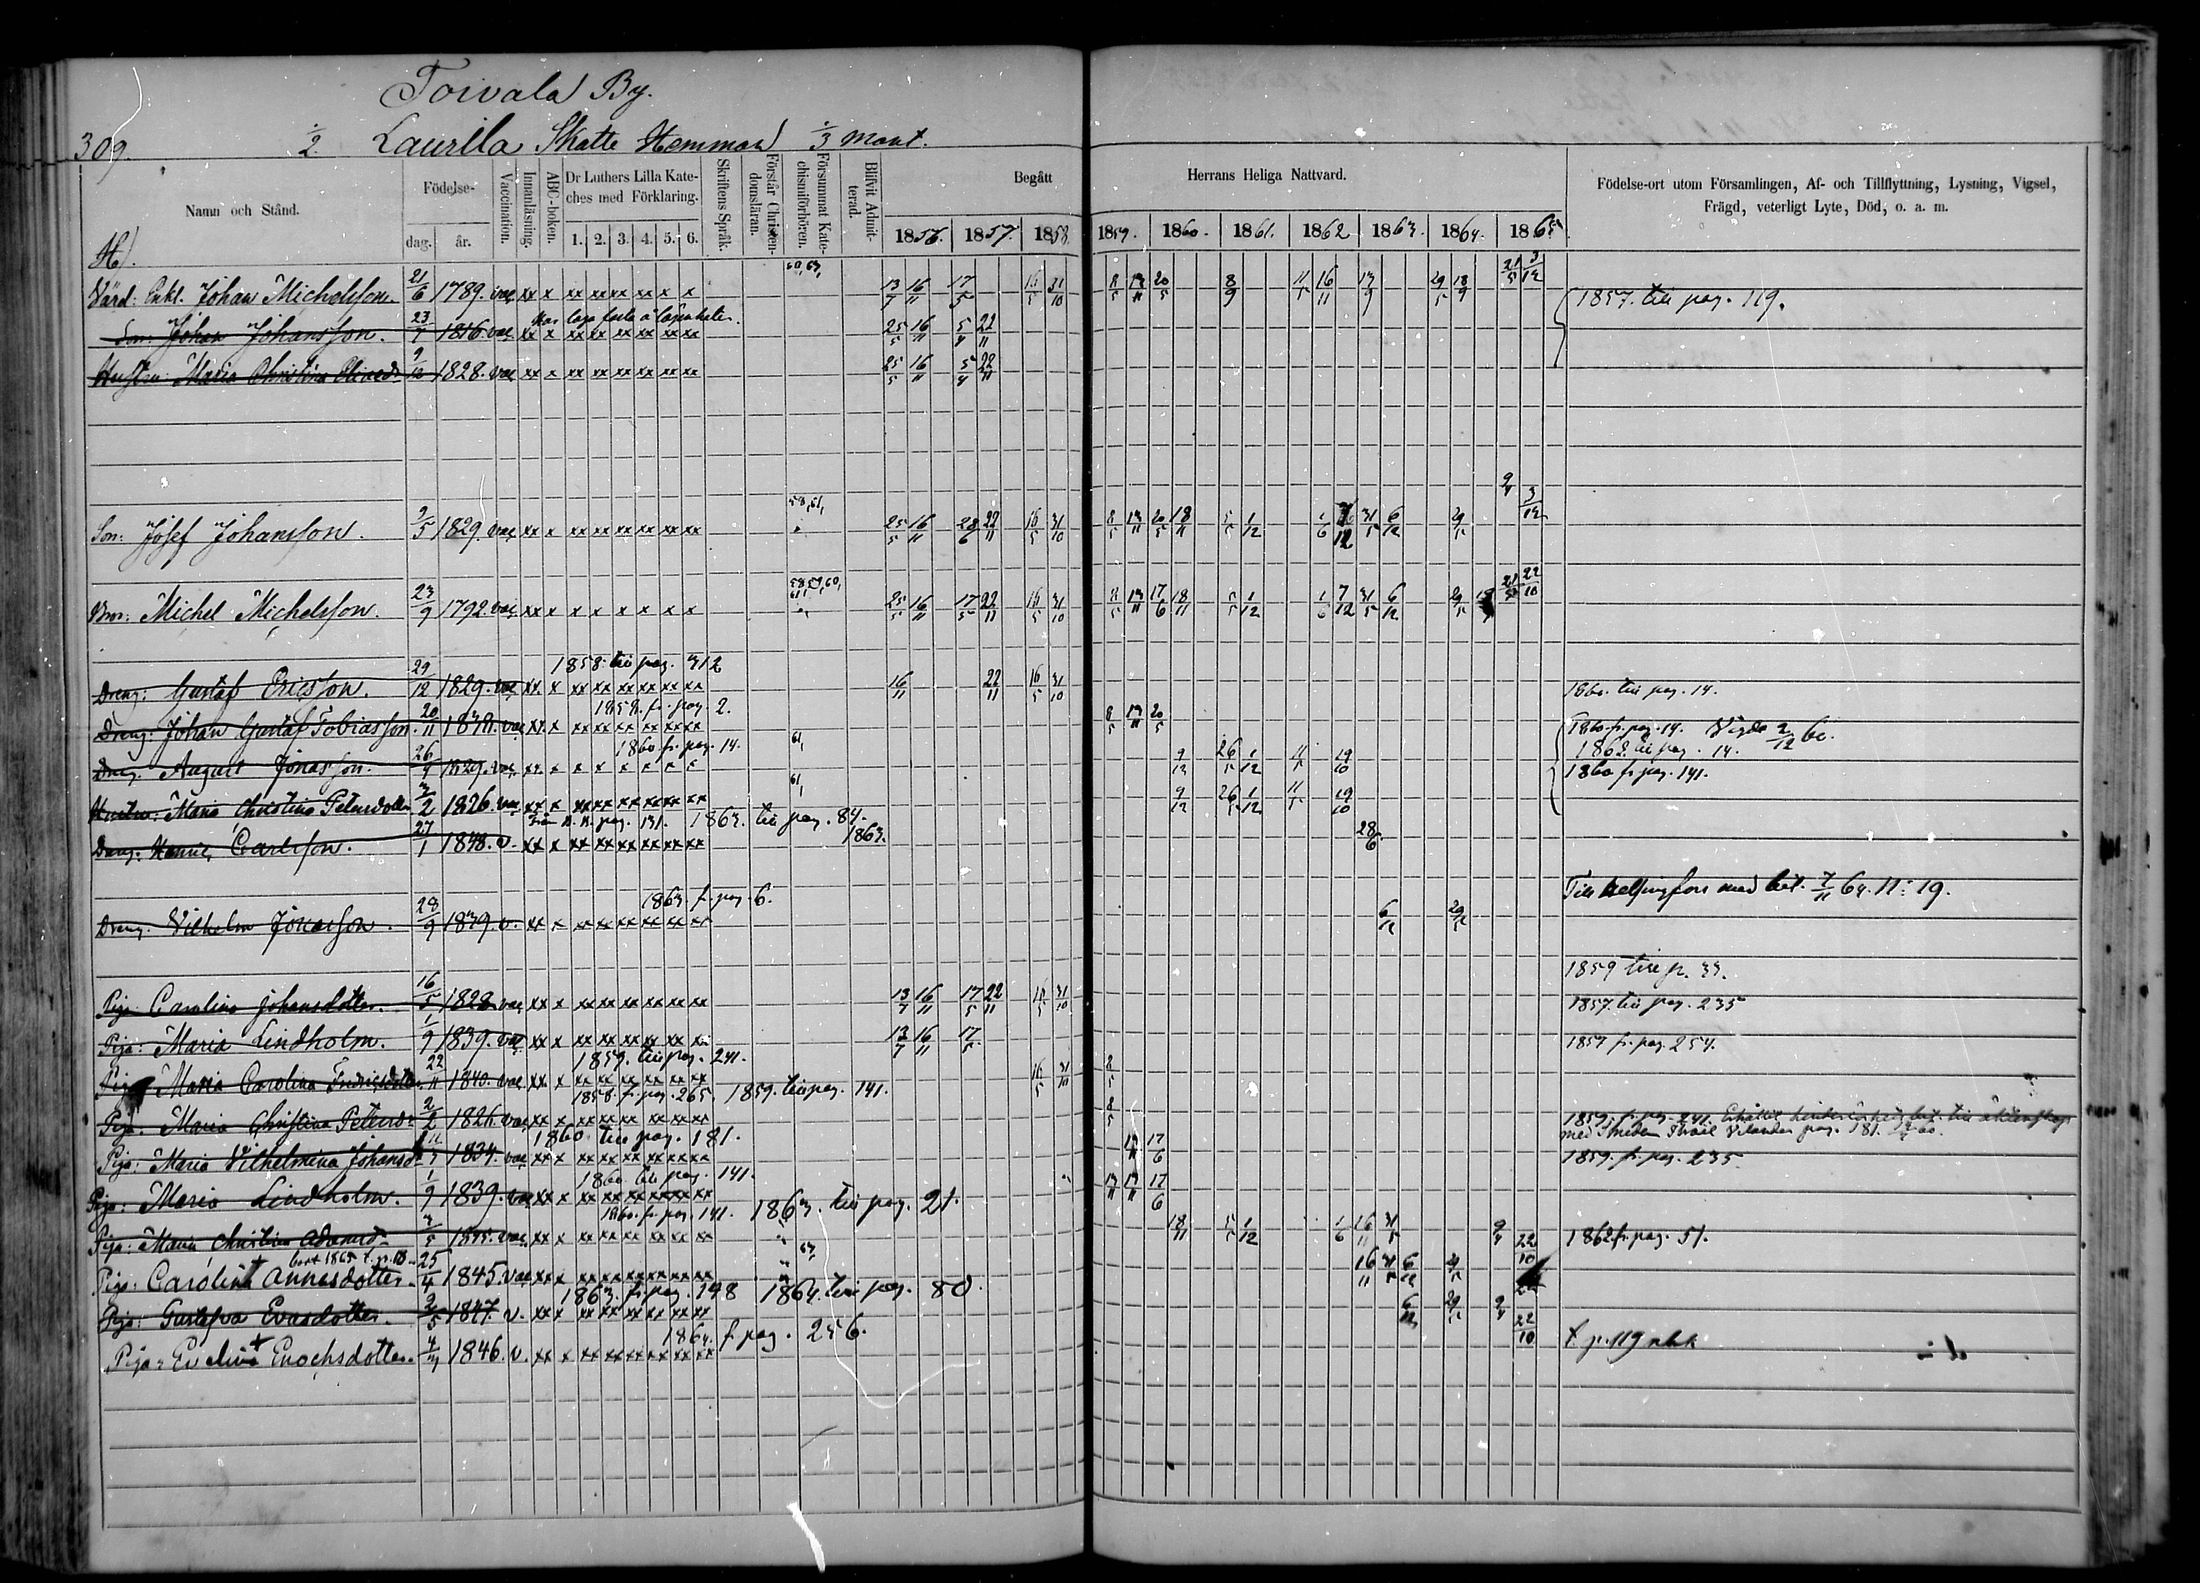 Toivala By.
309. 1/2. Laurila Skatte Hemman 1/3 Mant.
Namn och Stånd.
Födelse-
dag. år.
Vaccination.
Innanläsning.
ABC-boken.
Dr Luthers Lilla Kate-
ches med Förklaring.
1. 2. 3. 4. 5. 6.
Skriftens Språk.
Förstår Christen-
domsläran.
Försummat Kate-
chismiförhören.
Blifvit Admit-
terad.
Begått Herrans Heliga Nattvard.
1856. 1857. 1858. 1859. 1860. 1861. 1862 1863. 1864. 1865
Födelse-ort utom Församlingen, Af- och Tillflyttning, Lysning, Vigsel,
Frägd, veterligt Lyte, Död, o. a. m.
Värd: Enkl. Johan Michelsson. 21/6 1789. vac xx x xx xx xx xx x x 60, 63, 13/7 16/11 17/5 16/5 31/10 8/5 13/11 20/5 8/9 11/5 16/11 13/9 29/5 18/9 21/5 3/12
1857. till pag. 119.
Son: Johan Johansson. 23/7 1816 vac xx x xx xx xx xx xx xx 25/5 16/11 5/4 22/11
Hustru: Maria Christina 9/12 1828. vac xx x xx xx xx xx xx xx 25/5 16/11 5/4 22/11
Son: Josef Johansson. 9/5 1829. vac xx x xx xx xx xx xx xx 58, 61, 25/5 16/11 28/6 22/11 16/5 31/10 8/5 13/11 20/5 18/11 5/5 1/12 1/6 7/12 31/5 6/12 29/5 9/4 3/12
Bror: Michel Michelsson. 23/9 1792. vac xx x x x x x x x 58, 59, 60, 61, 25/5 16/11 17/5 22/11 16/5 31/10 8/5 13/11 17/6 18/11 5/5 1/12 1/6 7/12 31/5 6/12 29/5 22/10
1858. till pag. 312
Dreng: Gustaf Ericsson. 29/12 1829. vac xx x xx xx xx xx xx xx 16/11 22/11 16/5 31/10
1858. fr. pag. 2. 1860. till pag. 14.
Dreng: Johan Gustaf Tobiasson. 20/11 1838. vac xx x xx xx xx xx xx xx 8/5 13/11 20/5
1860 fr. pag. 14. 1860. fr. pag. 14. Vigde 2/12 60.
Dreng: August Jonasson. 26/9 1829. vac xx x x x x x x x 61, 9/12 26/5 1/12 11/5 19/10 1862. till pag. 14.
1860 fr. pag. 141.
Hustru: Maria Christina Petersdotter 2/2 1826. vac xx x xx xx xx xx xx xx 61, 9/12 26/5 1/12 11/5 19/10
pag. 131. 1863. till pag. 84.
Dreng: Carlsson. 27/1 1848. v. xx x xx xx xx xx xx xx 1863. 28/6
1863. f. pag. 6. Till Helsingfors med bet. 7/11 64. N: 19.
Dreng: Vilhelm Jonasson. 28/9 1839. v. xx x xx xx xx xx xx xx 6/12 29/5
1859 till p. 33.
Piga: Carolina Johansdotter. 16/5 1828 vac xx x xx xx xx xx xx xx 13/7 16/11 17/5 22/11 16/5 31/10
1857. till pag. 235
Piga: Maria Lindholm. 1/9 1839. vac xx x xx xx xx xx xx xx 13/7 16/11 17/5
1859. till pag. 241. 1857 fr. pag. 254.
Piga: Maria Carolina Fredricsdotter 22/11 1840. vac xx x xx xx xx xx xx xx 16/5 31/10 8/5
1858. fr. pag. 265. 1859. till pag. 141.
Piga: Maria Christina Petersd. 2/2 1826. vac xx x xx xx xx xx xx xx 8/5
1860 till pag. 181. 1859. fr. pag. 241.
pag. 181.
Piga: Maria Vilhelmina Johansd. 1834. vac xx x xx xx xx xx xx xx 13/11 17/6
1860 till pag. 141. 1859. fr. pag. 235.
Piga: Maria Lindholm. 1/9 1839. vac xx x xx xx xx xx xx xx 13/11 17/6
1860. fr. pag. 141. 1863. till pag. 21.
Piga: Maria Christina Adamsd. 1845. vac xx x xx xx xx xx xx xx 18/11 5/5 1/12 1/6 16/11 31/5
1862 fr. pag. 51.
Piga: Carolina Annasdotter. 25/4 1845. vac xx x xx xx xx xx xx xx 16/11 31/5 6/12 29/5 9/4 22/10
1863. fr. pag. 198 1864. till pag. 80.
Piga: Gustafva Evasdotter. 2/5 1847. v. xx x xx xx xx xx xx xx 6/12 29/5 9/4
1864. f. pag. 256.
Piga: Evelina Enochsdotter. 1846. v. xx x xx xx xx xx xx xx 22/10 f. p. 119 nbk